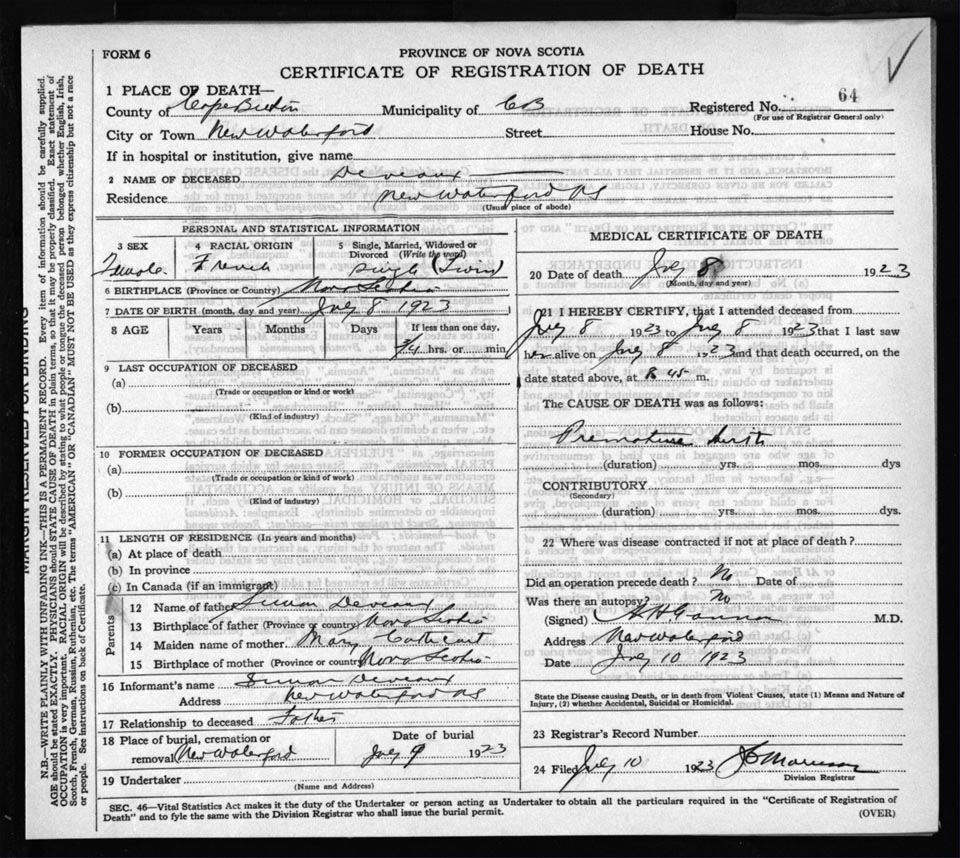 FORM 6
PROVINCE OF NOVA SCOTIA
CERTIFICATE OF REGISTRATION OF DEATH
1 PLACE OF DEATH—
County of Cape Breton Municipality of CB Registered No. 64
(For use of Registrar General only)
City or Town New Waterford Street House No.
If in hospital or institution, give name
2 NAME OF DECEASED Deveaux
Residence New Waterford NS
(Usual place of abode)
PERSONAL AND STATISTICAL INFORMATION
3 SEX 4 RACIAL ORIGIN 5 Single, Married, Widowed or Divorced (Write the word)
Female French Single (Twin)
6 BIRTHPLACE (Province or Country) Nova Scotia
7 DATE OF BIRTH (month, day and year) July 8 1923
8 AGE Years Months Days If less than one day,
3/4 hrs. or min.
9 LAST OCCUPATION OF DECEASED
(a)
(Trade or occupation or kind of work)
(b)
(Kind of industry)
10 FORMER OCCUPATION OF DECEASED
(a)
(Trade or occupation or kind of work)
(b)
(Kind of industry)
11 LENGTH OF RESIDENCE (In years and months)
(a) At place of death
(b) In province
(c) In Canada (if an immigrant)
Parents
12 Name of father Simon Deveaux
13 Birthplace of father (Province or country) Nova Scotia
14 Maiden name of mother Mary Cathcart
15 Birthplace of mother (Province or country) Nova Scotia
16 Informant's name Simon Deveaux
Address New Waterford NS
17 Relationship to deceased Father
18 Place of burial, cremation or removal New Waterford Date of burial July 9 1923
19 Undertaker
(Name and Address)
MEDICAL CERTIFICATE OF DEATH
20 Date of death July 8 1923
(Month, day and year)
21 I HEREBY CERTIFY, that I attended deceased from
July 8 1923 to July 8 1923 that I last saw
her alive on July 8 1923 and that death occurred, on the
date stated above, at 8.45 m.
The CAUSE OF DEATH was as follows:
Premature birth
(duration) yrs. mos. dys
CONTRIBUTORY
(Secondary)
(duration) yrs. mos. dys.
22 Where was disease contracted if not at place of death?
Did an operation precede death? No Date of
Was there an autopsy? No
(Signed) M.D.
Address New Waterford
Date July 10 1923
State the Disease causing Death, or in death from Violent Causes, state (1) Means and Nature of
Injury, (2) whether Accidental, Suicidal or Homicidal.
23 Registrar's Record Number
24 Filed July 10 1923 Morrison
Division Registrar
SEC. 46—Vital Statistics Act makes it the duty of the Undertaker or person acting as Undertaker to obtain all the particulars required in the "Certificate of Registration of
Death" and to fyle the same with the Division Registrar who shall issue the burial permit. (OVER)
MARGIN RESERVED FOR BINDING
N.B.—WRITE PLAINLY WITH UNFADING INK—THIS IS A PERMANENT RECORD. Every item of information should be carefully supplied.
AGE should be stated EXACTLY. PHYSICIANS should STATE CAUSE OF DEATH in plain terms, so that it may be properly classified. Exact statement of
OCCUPATION is very important. RACIAL ORIGIN will be described by stating to what people or tongue the deceased person belonged whether English, Irish,
Scotch, French, German, Russian, Ruthenian, etc. The terms "AMERICAN" OR "CANADIAN" MUST NOT BE USED as they express citizenship but not a race
or people. See instructions on back of Certificate.